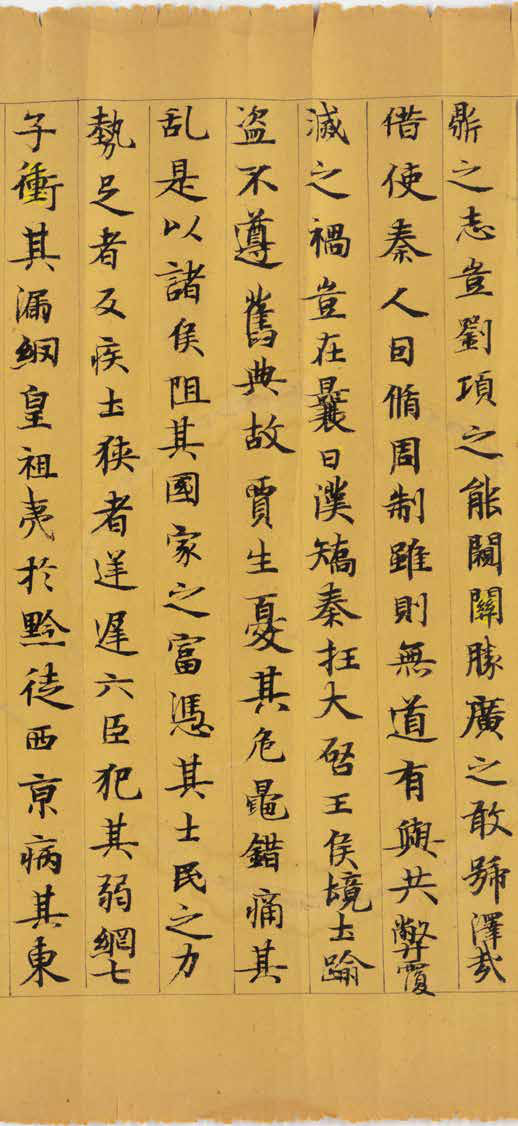 鼎之志豈劉項之能闚關勝廣之敢號澤哉
借使秦人因脩周制雖則無道有與共弊覆
滅之禍豈在曩日漢矯秦枉大啓王侯境土踰
盗不遵舊典故賈生憂其危鼂錯痛其
乱是以諸侯阻其國家之富憑其士民之力
勢足者反疾土狭者逆遲六臣犯其弱網七
子衝其漏網皇祖夷於黔徒西京病其東